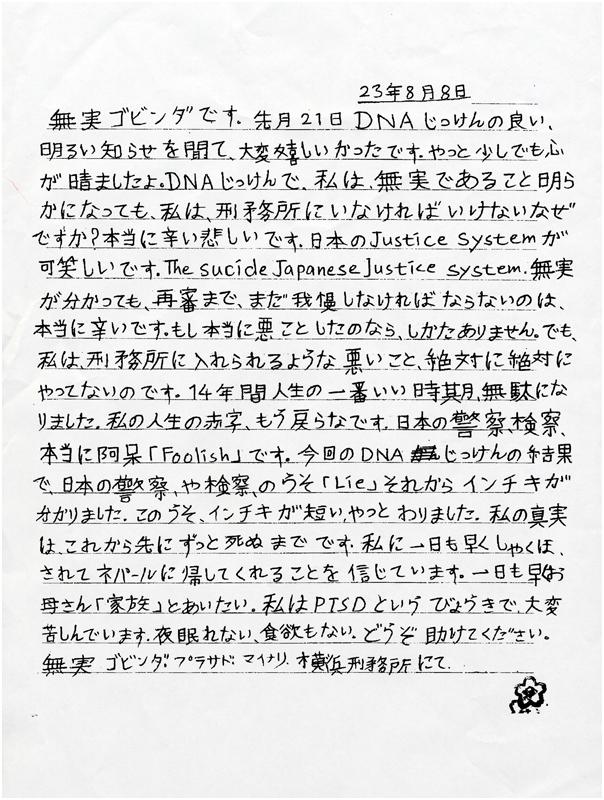 23年8月8日
無実ゴビンダです。先月21日DNAじっけんの良い、
明るい知らせを聞て、大変嬉しいかったです。やっと少しでも心
が晴ましたよ。DNAじっけんで、私は、無実であること明ら
かになっても、私は、刑務所にいなければいけないなぜ
ですか?本当に辛い悲しいです。日本のJustice Systemが
可笑しいです。The sucide Japanese Justice system. 無実
が分かっても、再審まで、まだ我慢しなければならないのは、
本当に辛いです。もし本当に悪ことしたのなら、しかたありません。でも、
私は、刑務所に入れられるような悪いこと、絶対に絶対に
やってないのです。14年間人生の一番いい時期、無駄にな
りました。私の人生の赤字、もう戻らなです。日本の警察、検察、
本当に阿呆「Foolish」です。今回のDNAじっけんの結果
で、日本の警察、や検察、のうそ「Lie」それからインチキが
分がりました。このうそ、インチキが短い、やっとわりました。私の真実
は、これから先にずっと死ぬまでです。私に一日も早くしゃくほ、
されてネパールに帰してくれることを信じています。一日も早くお
母さん「家族」とあいたい。私はPTSDというびょうきで、大変
苦しんでいます。夜眠れない、食欲もない。どうぞ助けてください。
無実 ゴビンダ. プラサド. マイナリ. 横浜刑務所にて.